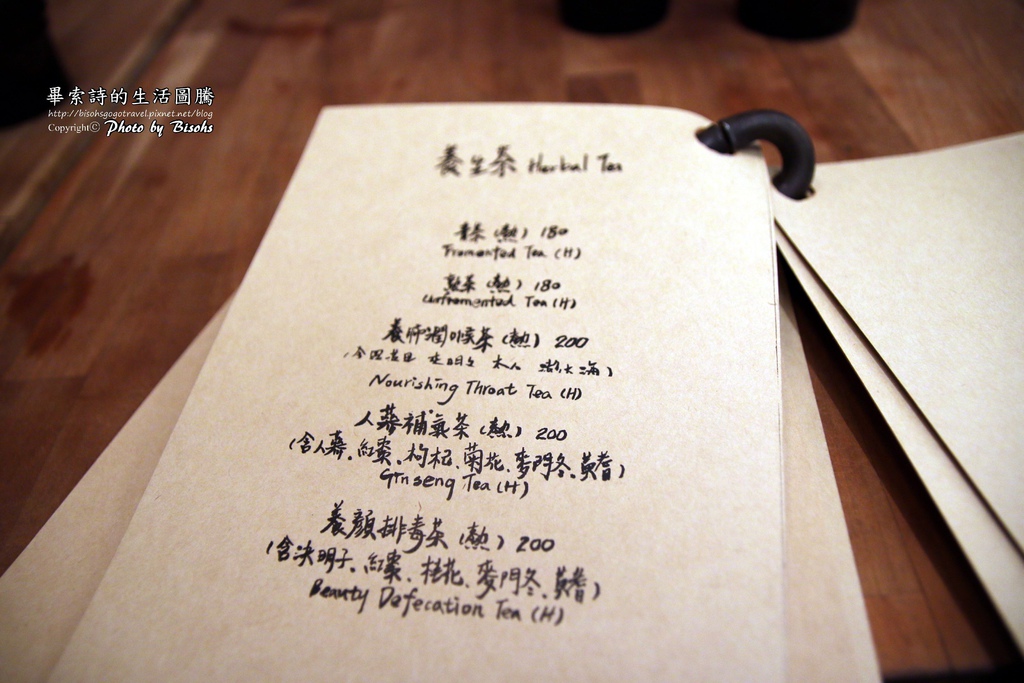 畢索詩的生活圖騰
http://bisohsgogotravel.pixnet.net/blog
Copyright© Photo by Bisohs
養生茶 Herbal Tea
青茶(熱) 180
Fromented Tea (H)
熟茶(熱) 180
Unfromented Tea (H)
養肝潤喉茶(熱) 200
Nourishing Throat Tea (H)
人蔘補氣茶(熱) 200
(含人蔘、紅棗、枸杞、菊花、麥門冬、黃耆)
Ginseng Tea (H)
養顏排毒茶(熱) 200
(含決明子、紅棗、桂花、麥門冬、黃耆)
Beauty Defecation Tea (H)